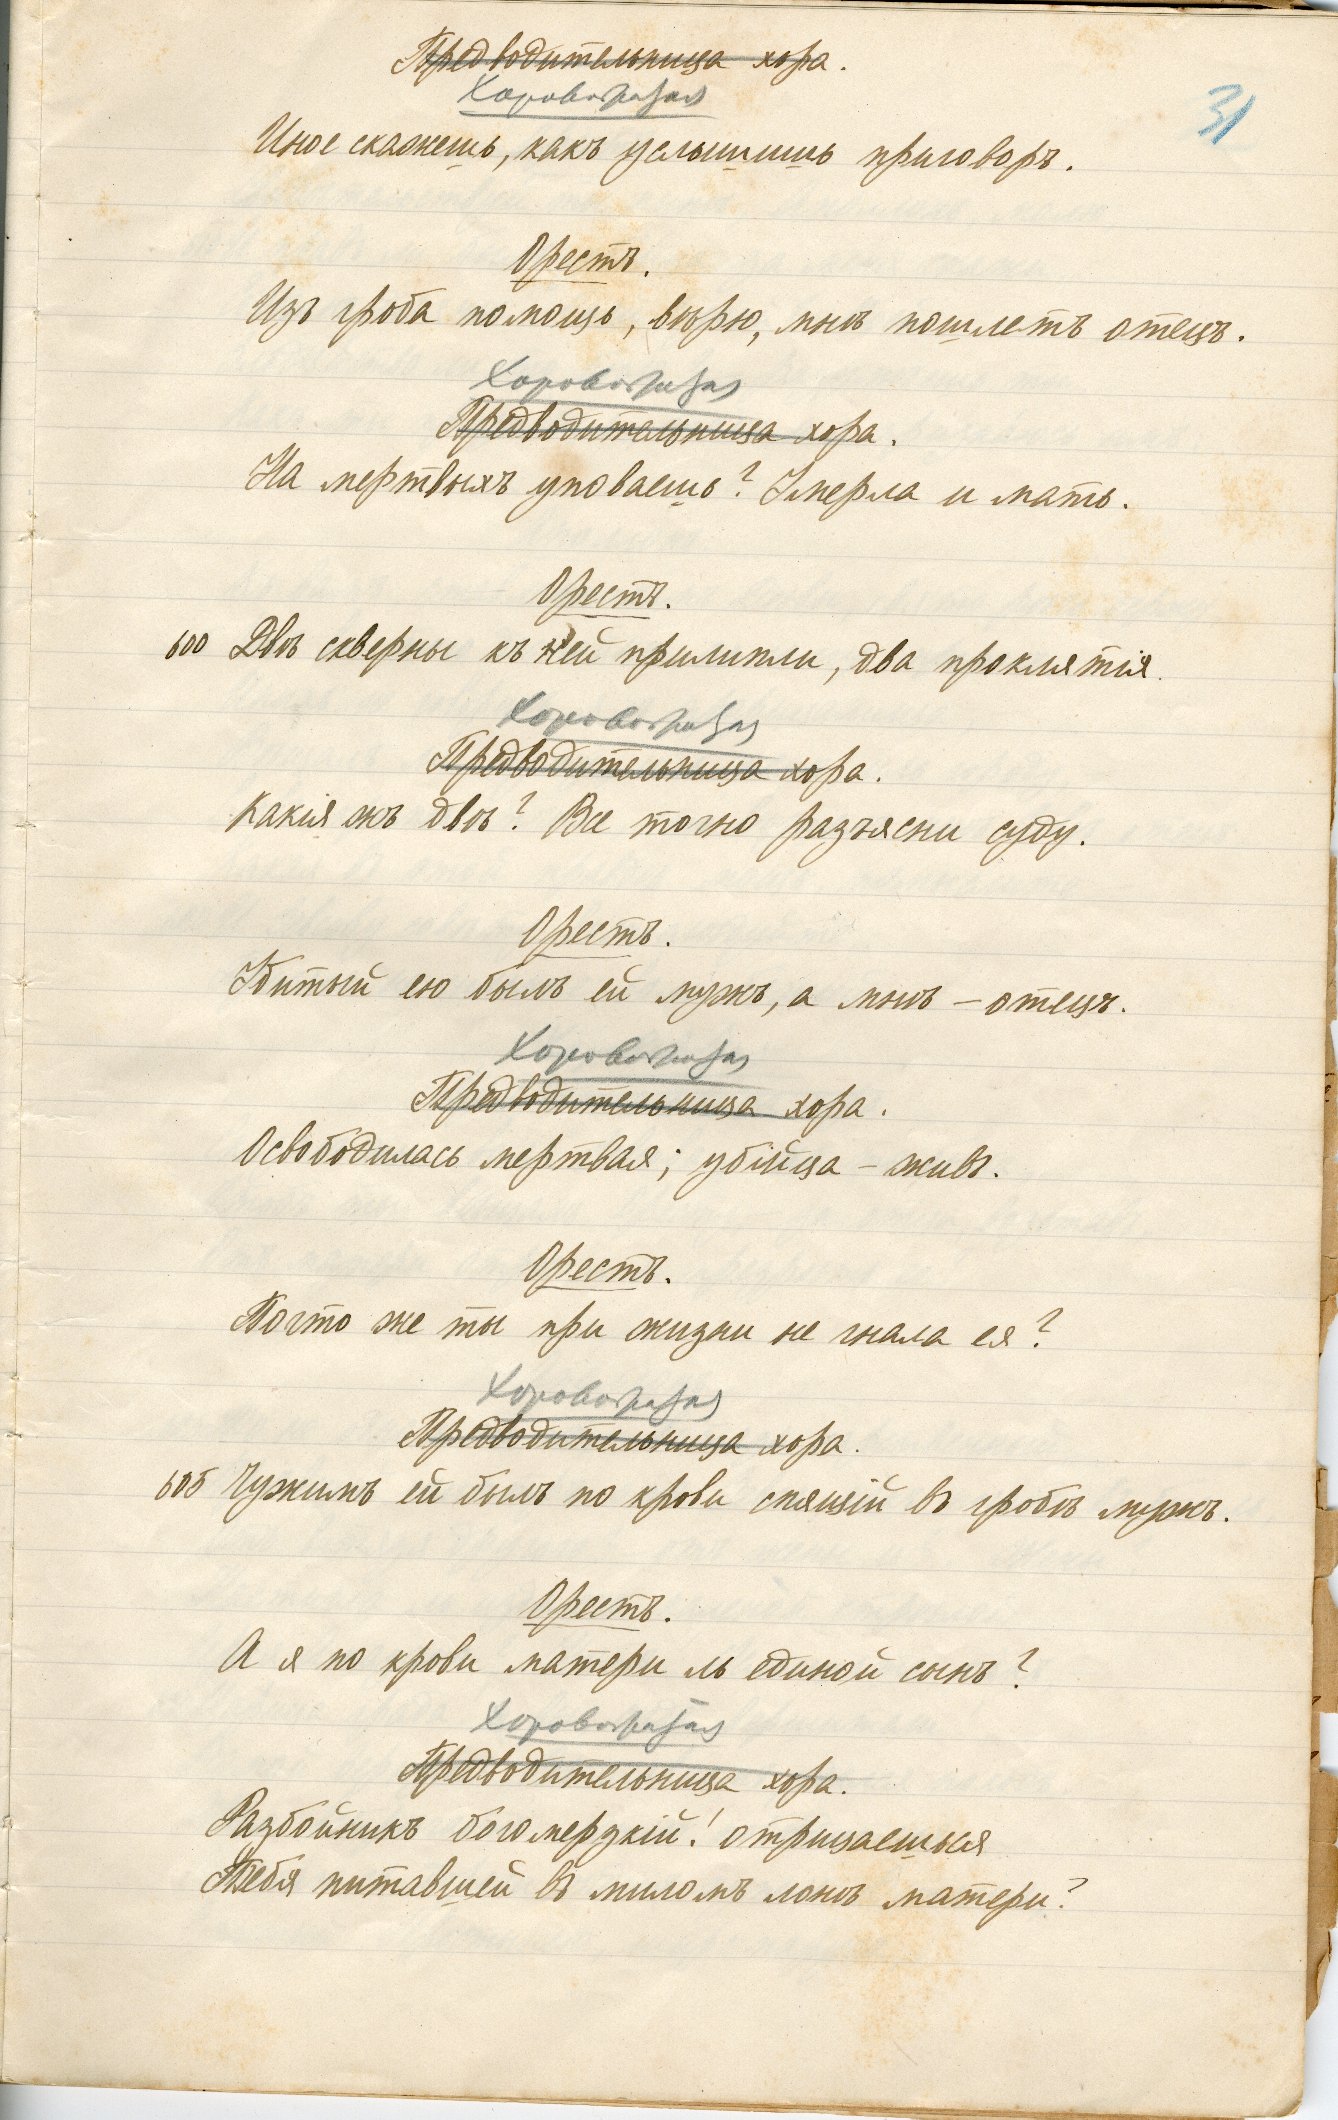 Предводительница хора.
Хоровожатая
31
Иное скажешь, какъ услышишь приговоръ.
Орестъ.
Изъ гроба помощь, вѣрю, мнѣ пошлетъ отецъ.
Хоровожатая
Предводительница хора.
На мертвыхъ уповаешь? Умерла и мать.
Орестъ.
600 Двѣ скверны къ ней прилипли, два проклятія.
Хоровожатая
Предводительница хора.
Какія жъ двѣ? Все точно разъясни суду.
Орестъ.
Убитый ею былъ ей мужъ, а мнѣ – отецъ.
Хоровожатая
Предводительница хора.
Освободилась мертвая; убійца – живъ.
Орестъ.
Почто же ты при жизни не гнала ея?
Хоровожатая
Предводительница хора.
605 Чужимъ ей былъ по крови спящій въ гробѣ мужъ.
Орестъ.
А я по крови матери ль единой сынъ?
Хоровожатая
Предводительница хора.
Разбойникъ богомерзкій! отрицаешься
Тебя питавшей въ миломъ лонѣ матери?